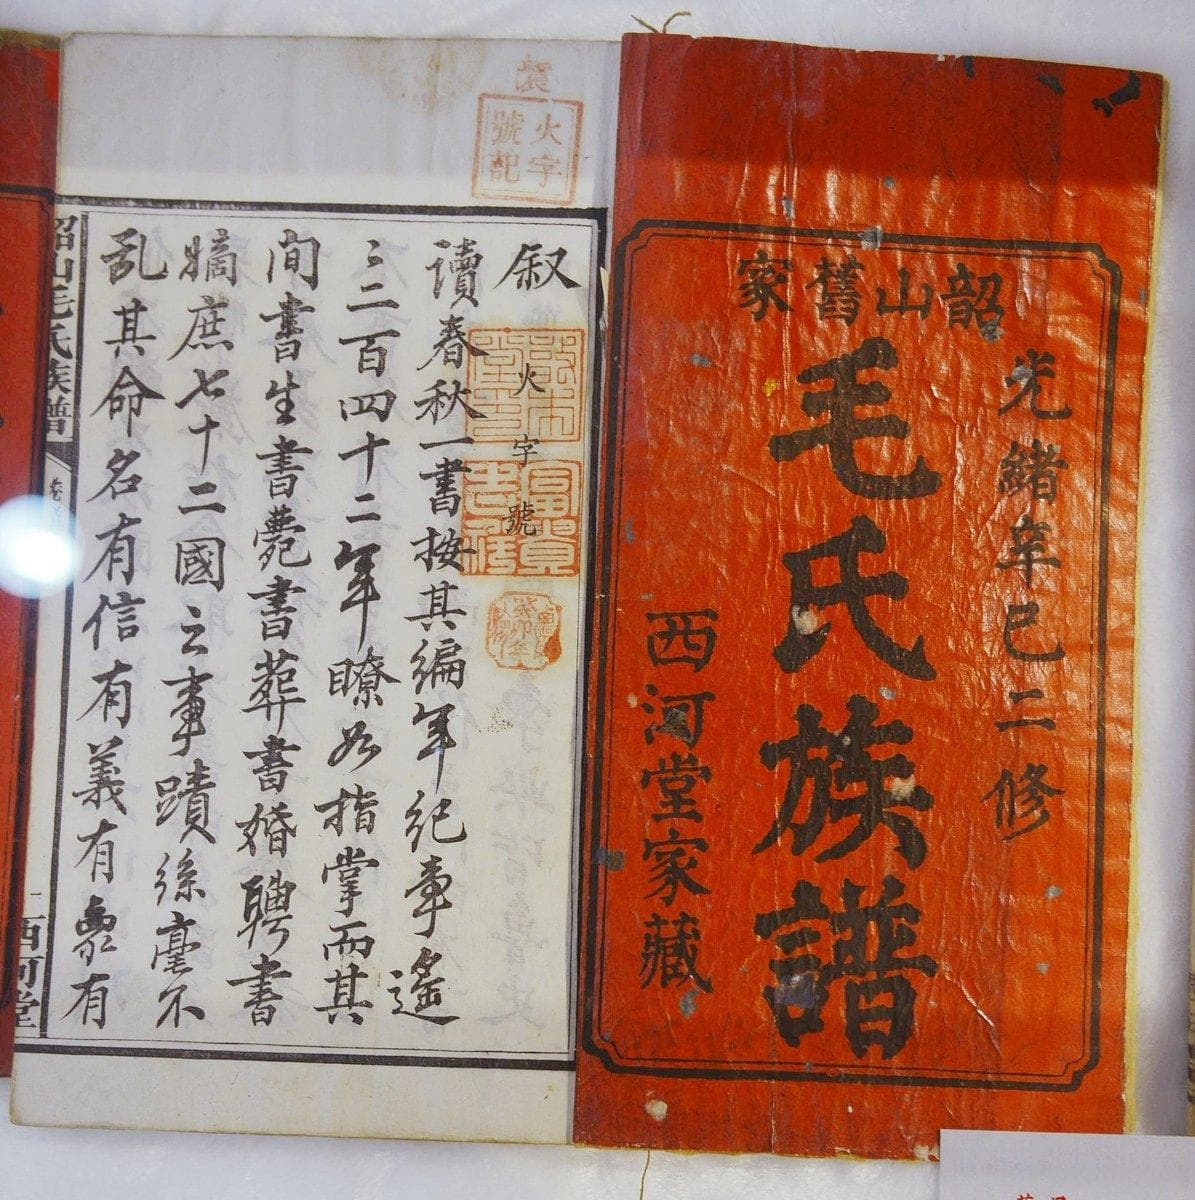 韶山舊家
光緒辛巳二修
毛氏族譜
西河堂家藏
火字
號記
叙
火字號
讀春秋一書按其編年紀事遙
遙二百四十二年瞭如指掌而其
間書生書薨書葬書婚聘書
嫡庶七十二國之事蹟絲毫不
乱其命名有信有義有象有
韶山毛氏族譜
西河堂